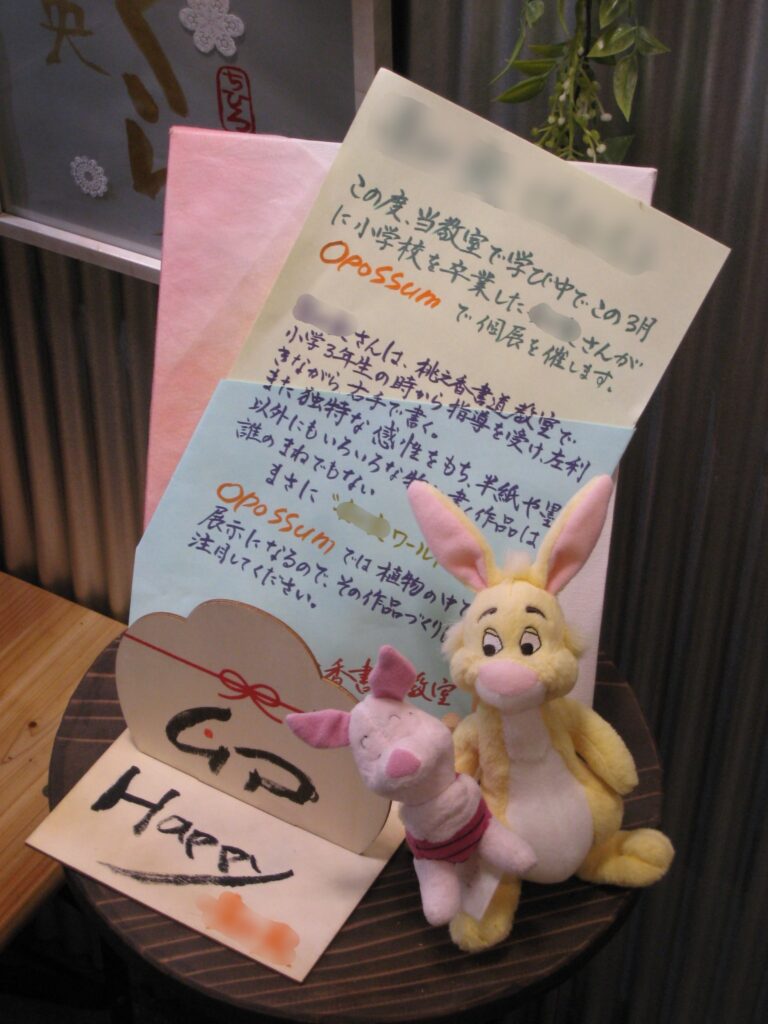 央
ちひろ
この度、当教室で学び中でこの3月
に小学校を卒業した さんが
Opossum で個展を催します。
さんは、桃之香書道教室で、
小学3年生の時から指導を受け、左利
きながら右手で書く。
また独特な感性をもち、半紙や墨
以外にもいろいろな 書く作品は
誰のまねでもない
まさに ワールド
Opossum では植物の中で
展示になるので、その作品づくり
注目してください。
香書 教室
Happy